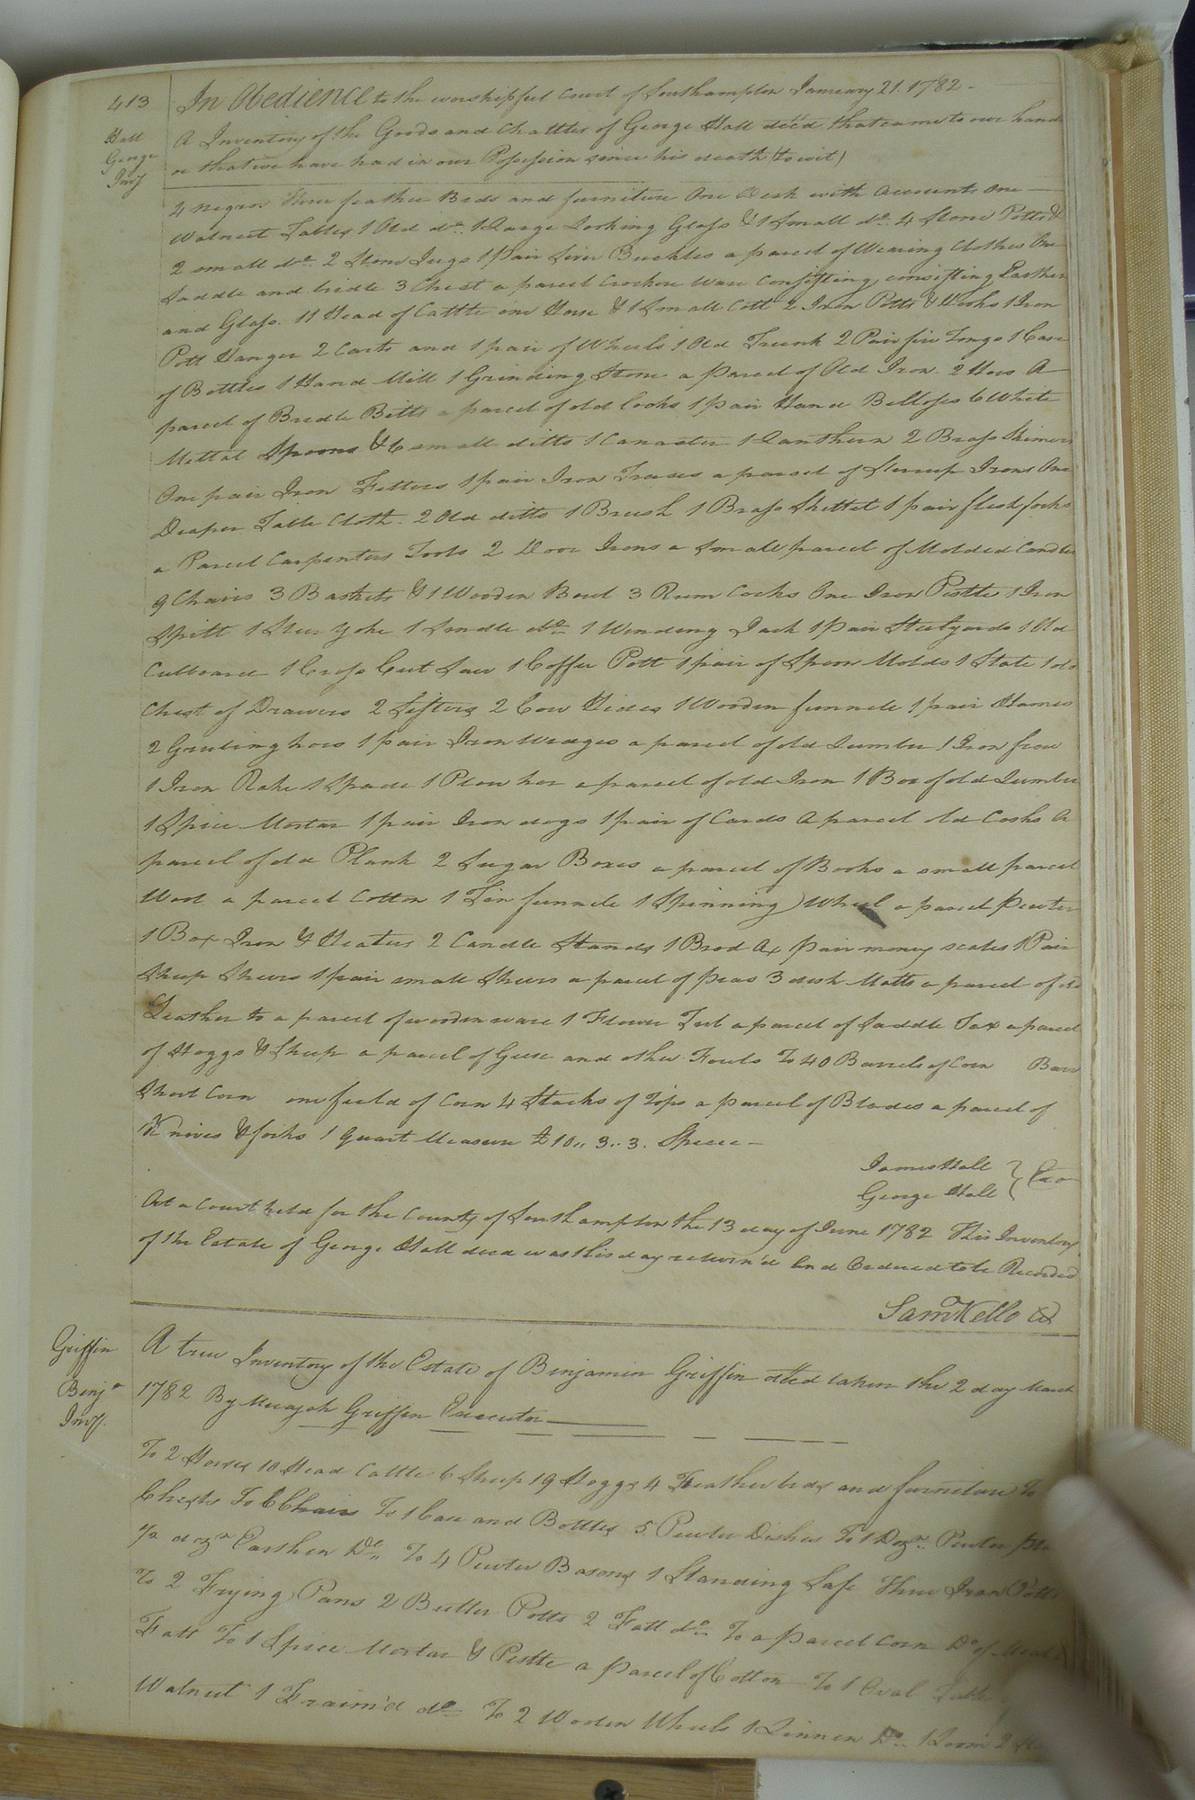 413
In Obedience to the worshipful Court of Southampton January 21. 1782.
Hall
George
Invy
A Inventory of the Goods and Chattles of George Hall decd. that came to our hand
or that we have had in our Possession since his death (to wit)
4 negros Three feather Beds and furniture One Desk with accounts One
Walnut Table 1 Old do. 1 Large Looking Glass & 1 Small do. 4 Stone Potts &
2 small do. 2 Stone Jugs 1 Pair Silver Buckles a parcel of Wearing Clothes One
Saddle and bridle 3 Chest a parcel Crockere Ware Consisting, consisting Earthen
and Glass. 11 Head of Cattle one Horse & 1 Small Colt 2 Iron Potts & Hooks 1 Iron
Pott Hanger 2 Carts and 1 pair of Wheels 1 Old Trunk 2 Pair fire Tongs 1 Case
of Bottles 1 Hand Mill 1 Grinding Stone a parcel of Old Iron. 2 Hoes A
parcel of Bridle Bitts a parcel of old Locks 1 pair Hand Bellows 6 White
Mettal Spoons & 6 small ditto 1 Canaster 1 Lanthern 2 Brass Skimers
One pair Iron Fetters 1 pair Iron Traces a parcel of Stirrup Irons One
Deaper Table Cloth. 2 Old ditto 1 Brush 1 Brass Skillet 1 pair flesh forks
a Parcel Carpenters Tools 2 Door Irons a Small parcel of Molded Candles
9 Chairs 3 Baskets & 1 Wooden Bowl 3 Rum Casks One Iron Pestle 1 Iron
Spitt 1 Steer Yoke 1 Single do. 1 Winding Jack 1 pair Steelyards 1 Old
Cutboard 1 Cross Cut Saw 1 Coffee Pott 1 pair of Spoon Molds 1 Slate 1 old
Chest of Drawers 2 Sifters 2 Cow Hides 1 Wooden funnele 1 pair Hames
2 Grubing hoes 1 pair Iron Wedges a parcel of old Lumber 1 Iron frow
1 Iron Rake 1 Spade 1 Plow hoe a parcel of old Iron 1 Box of old Lumber
1 Spice Mortar 1 pair Iron dogs 1 pair of Cards a parcel old Casks A
parcel of old Plank 2 Sugar Boxes a parcel of Books a small parcel
Wool a parcel Cotton 1 Tin funnele 1 Spinning Wheel a parcel pewter
1 Box Iron & Heaters 2 Candle Stands 1 Brod Ax pair money scales 1 Pair
Sheep Sheers 1 pair small Sheers a parcel of peas 3 dish Matts a parcel of old
Leather to a parcel of wooden ware 1 Flower Tub a parcel of Saddle Tax a parcel
of Hoggs & Sheep a parcel of Geese and other Fouls To 40 Barrels of Corn Barr
Short Corn one field of Corn 4 Stacks of Tops a parcel of Blades a parcel of
Knives & forks 1 Quart Measure £10.. 3.. 3. Specie
James Hall
George Hall } Exo
At a Court held for the County of Southampton the 13 day of June 1782 This Inventory
of the Estate of George Hall decd was this day return'd and Ordered to be Recorded
Saml Kello
Griffin
Benja
Invy.
A true Inventory of the Estate of Benjamin Griffin decd taken the 2 day March
1782 By Micajah Griffin Executor
To 2 Horses 10 Head Cattle 6 Sheep 19 Hoggs 4 Feather beds and furniture To
Chests To 6 Chairs To 1 Case and Bottles 5 Pewter Dishes To 1 Dozn. Pewter
1/2 dozn Earthen Do. To 4 Pewter Basons 1 Standing Safe Three Iron Potts
To 2 Frying Pans 2 Butter Potts 2 Fatt do. To a parcel Corn Do of Meat
Fatt To 1 Spice Mortar & Pestle a parcel of Cotton To 1 Oval Table
Walnut 1 Fraim'd do To 2 Wooden Wheels 1 Linnen Do. 1 Loom 2